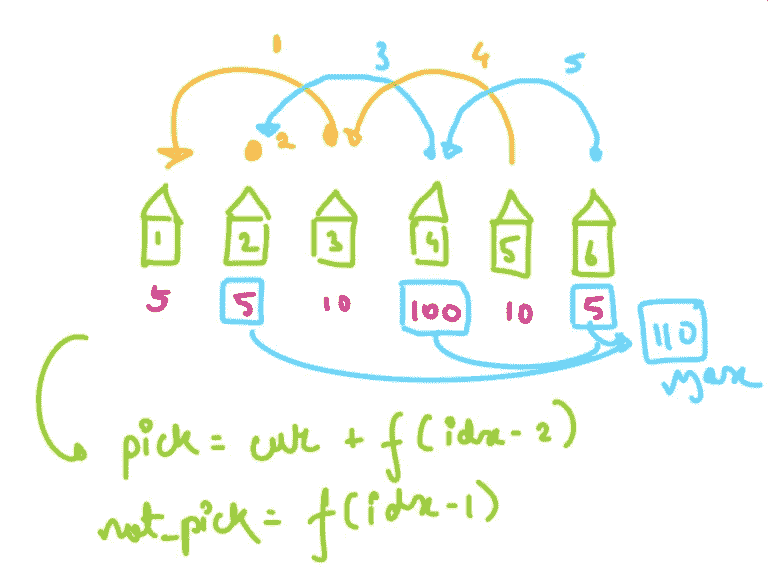 1 3 4 5
2
1 2 3 4 5 6
5 5 10 100 10 5
110
Max
pick = cur + f(idx-2)
not_pick = f(idx-1)